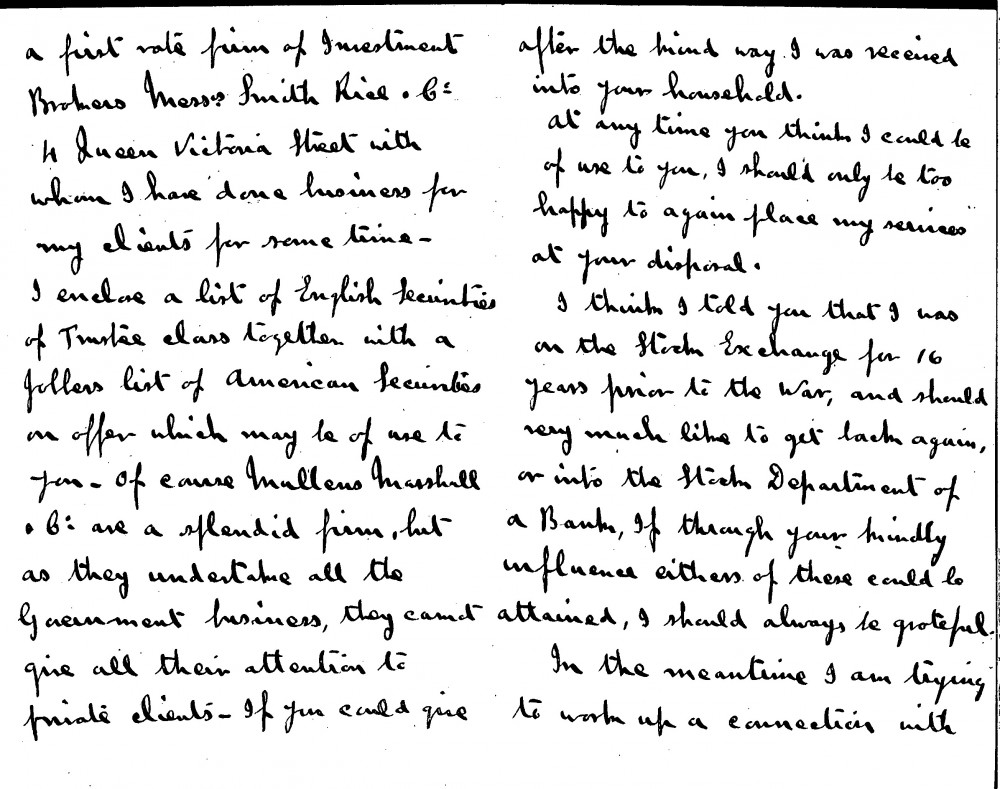 a first rate firm of Investment
Brokers Messrs Smith Rice & Co:
4 Queen Victoria Street with
whom I have done business for
my clients for some time -
I enclose a list of English Securities
of Trustee class together with a
Jobbers list of American Securities
on offer which may be of use to
you - Of course Mullens Marshall
& Co: are a splendid firm, but
as they undertake all the
Government business, they cannot
give all their attention to
private clients - If you could give
after the kind way I was received
into your household.
At any time you think I could be
of use to you, I should only be too
happy to again place my services
at your disposal.
I think I told you that I was
on the Stock Exchange for 16
years prior to the War, and should
very much like to get back again,
or into the Stock Department of
a Bank, If through your kindly
influence eithers of these could be
attained, I should always be grateful.
In the meantime I am trying
to work up a connection with